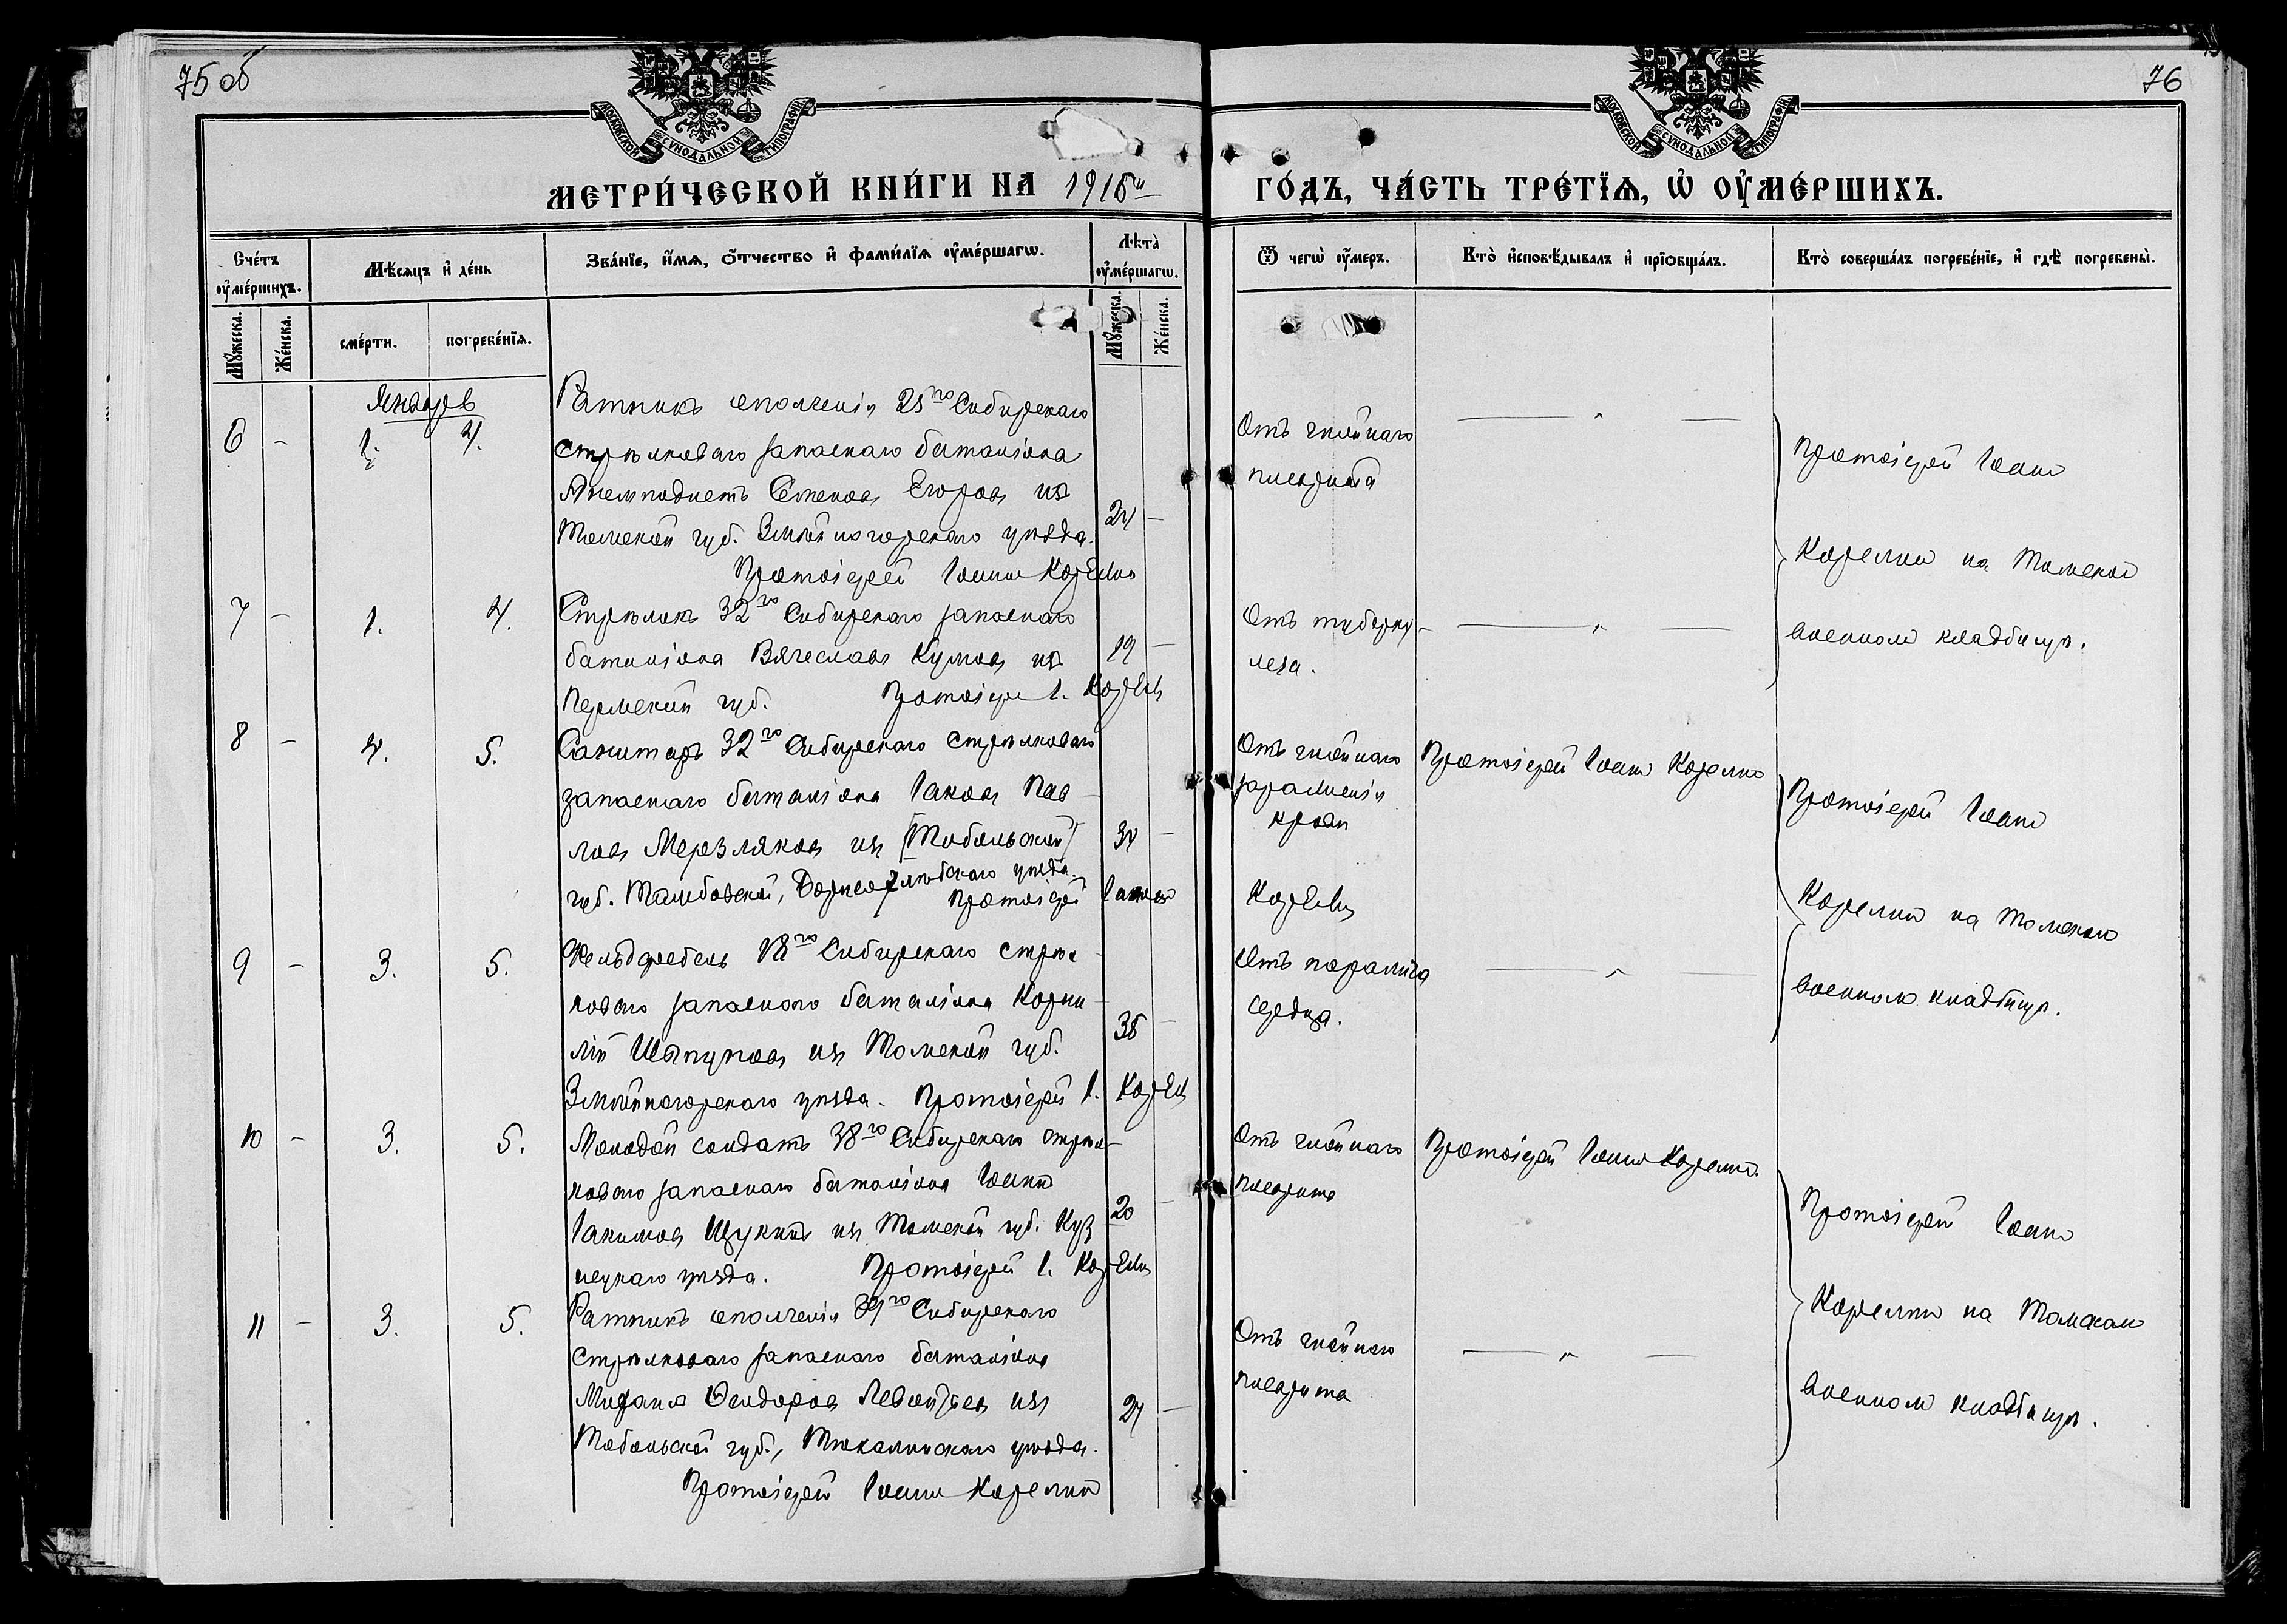 75 об
76
МОСКОВСКОЙ СУНОДАЛЬНОЙ ТИПОГРАФІИ
МОСКОВСКОЙ СУНОДАЛЬНОЙ ТИПОГРАФІИ
МЕТРИ́ЧЕСКОЙ КНИ́ГИ НА 1916й ГО́ДЪ, ЧА́СТЬ ТРЕ́ТЇѦ, Ѡ҆ ОУ҆МЕ́РШИХЪ.
Счетъ оу҆ме́ршихъ.
Мѣ́сяцъ и҆ де́нь
Зва́нїе, и҆́мѧ, ѻ҆́тчество и҆ фами́лїѧ оу҆ме́ршагѡ.
Лѣта̀ оу҆ме́ршагѡ.
Ѿ чегѡ̀ оу҆́меръ.
Кто̀ и҆сповѣ́дывалъ и҆ прїѡбща́лъ.
Кто̀ соверша́лъ погребе́нїе, и҆ гдѣ̀ погребены̀.
Му́жеска.
Же́нска.
сме́рти.
погребе́нїѧ.
Му́жеска.
Же́нска.
Январь
6 - 1. 4.
Ратникъ ополченія 25го Сибирскаго
стрѣлковаго запаснаго баталіона
Семеновъ Егоровъ изъ
Томской губ. Змѣиногорскаго уѣзда.
24 -
Протоіерей Іоаннъ Корелинъ
Отъ гнойнаго
плеврита
Протоіерей Іоаннъ
Корелинъ на Томскомъ
военномъ кладбищѣ.
7 - 1. 4.
Стрѣлокъ 32го Сибирскаго запаснаго
баталіона Вячеславъ Кумовъ изъ
Пермской губ. Протоіерей І. Корелинъ
19 -
Отъ туберку-
леза.
8 - 4. 5.
Санитаръ 32го Сибирскаго стрѣлковаго
запаснаго баталіона Іаковъ Пав-
ловъ Мерзляковъ изъ [Тобольской]
губ. Тамбовской, Борисоглѣбскаго уѣзда.
Протоіерей Іоаннъ Корелинъ
34 -
Отъ гнойнаго
зараженія
крови
Протоіерей Іоаннъ Корелинъ
Протоіерей Іоаннъ
Корелинъ на Томскомъ
военномъ кладбищѣ.
9 - 3. 5.
Фельдфебель 18го Сибирскаго стрѣл-
коваго запаснаго баталіона Корни-
лій Шапуновъ изъ Томской губ.
Змѣиногорскаго уѣзда. Протоіерей І. Корелинъ
35 -
Отъ паралича
сердца.
10 - 3. 5.
Молодой солдатъ 38го Сибирскаго стрѣл-
коваго запаснаго баталіона Іоаннъ
Іакимовъ Щукинъ изъ Томской губ. Куз
нецкаго уѣзда. Протоіерей І. Корелинъ
20 -
Отъ гнойнаго
плеврита
Протоіерей Іоаннъ Корелинъ.
Протоіерей Іоаннъ
Корелинъ на Томскомъ
военномъ кладбищѣ.
11 - 3. 5.
Ратникъ ополченія 39го Сибирскаго
стрѣлковаго запаснаго баталіона
Михаилъ Ѳеодоровъ Леонтьевъ изъ
Тобольской губ., Тюкалинскаго уѣзда.
24 -
Протоіерей Іоаннъ Корелинъ
Отъ гнойнаго
плеврита